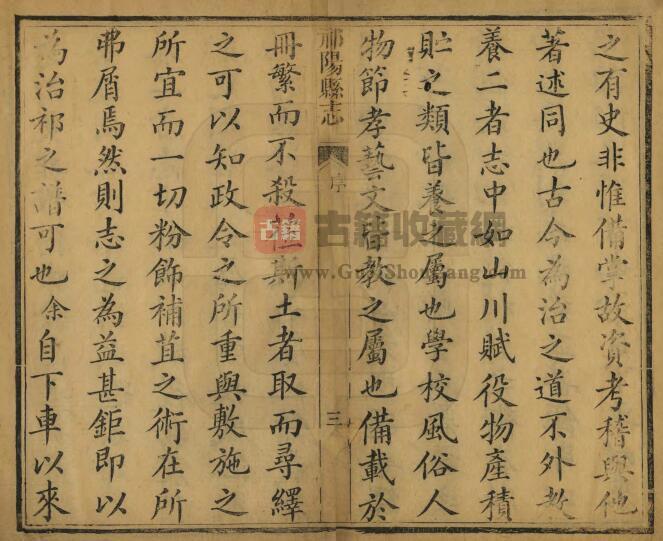 之有史非惟備掌故資考稽與他
著述同也古今為治之道不外教
養二者志中如山川賦役物產積
貯之類皆養之屬也學校風俗人
物節孝藝文皆教之屬也備載於
祁陽縣志
序
三
冊繁而不殺斯土者取而尋繹
之可以知政令之所重與敷施之
所宜而一切粉飾補苴之術在所
弗屑焉然則志之為益甚鉅即以
為治祁之譜可也余自下車以來
古籍
古籍收藏網